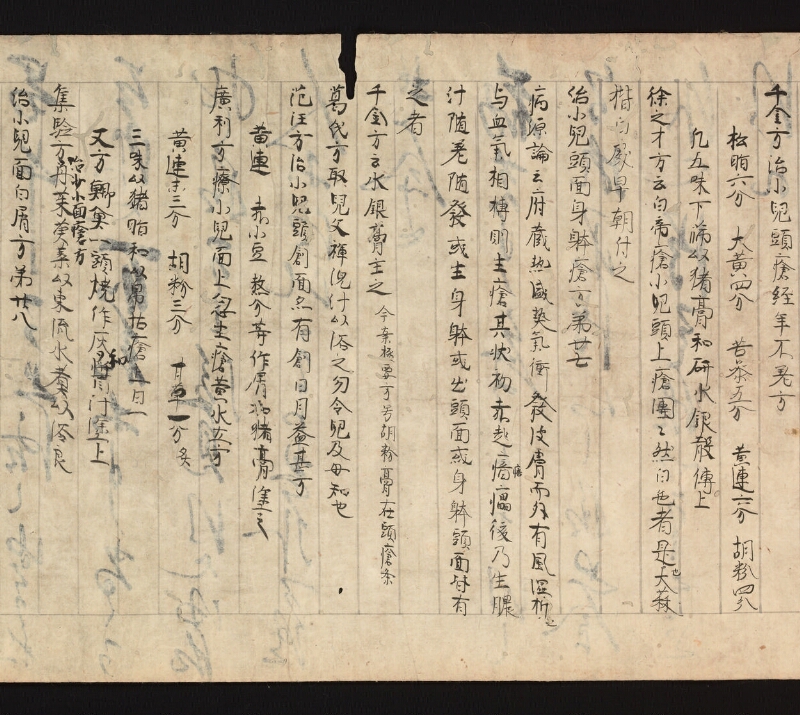 千金方治小兒頭瘡經年不差方
松脂六分 大黃四分 苦參五分 黃連六分 胡粉四分
凡五味下篩以猪膏和研水銀散傅上
徐之才方云白帝瘡小兒頭上瘡團々然白也者是也大蒜
揩白處早朝付之
治小兒頭面身躰瘡方第廿七
病源論云府藏熱盛熱氣衝發皮膚而外有風濕折之
与血氣相搏則生瘡其狀初赤起瘖㿔後乃生膿
汁隨差隨發或生身躰或出頭面或身躰頭面皆有
之者
千金方云水銀膏主之 今案極要方号胡粉膏在頭瘡条
葛氏方取兒父褌洗汁以浴之勿令兒及母知也
范汪方治小兒頭創面忽有創日月益甚方
黃連 赤小豆 熬分等作屑和猪膏塗之
廣利方療小兒面上忽生瘡黃水出方
黃連末三分 胡粉三分 甘草一分炙
三味以猪脂和以帛拈瘡上日一
又方鯽魚一頭燒作灰和醬汁塗上
集驗方治少小面瘡方丹棗葉以東流水煮以浴良
治小兒面白屑方第廿八